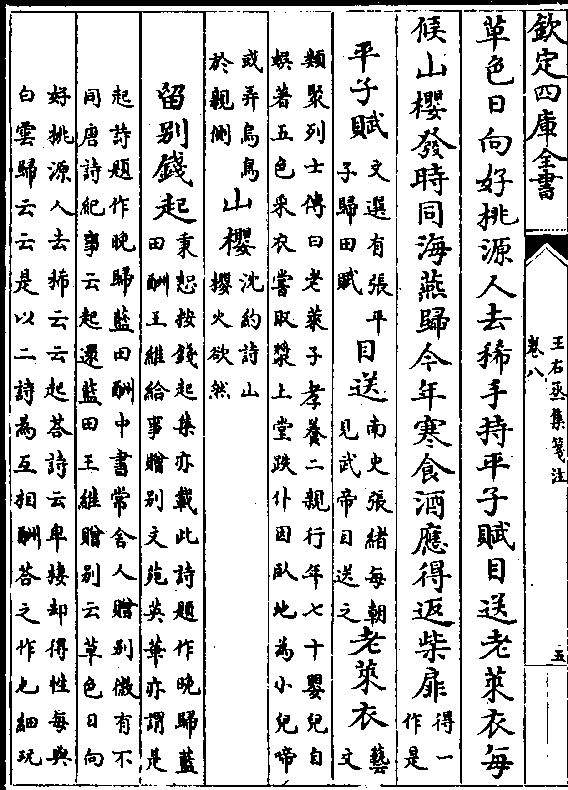 欽定四庫全書
王右丞集箋注
卷八
五
草色日向好桃源人去稀手持平子賦目送老萊衣每
候山櫻發時同海燕歸今年寒食酒應得返柴扉得一
作是
平子賦文選有張平
子歸田賦目送南史張緒每朝
見武帝目送之老萊衣藝文
類聚列士傳曰老萊子孝養二親行年七十嬰兒自
娯著五色采衣嘗取漿上堂跌仆因臥地為小兒啼
或弄烏鳥
於親側山櫻沈約詩山
櫻火欲然
留别錢起秉恕按錢起集亦載此詩題作晚歸藍
田酬王維給事贈别文苑英華亦謂是
起詩題作晚歸藍田酬中書常舍人贈别微有不
同唐詩紀事云起還藍田王維贈别云草色日向
好桃源人去稀云云起荅詩云卑棲却得性每與
白雲歸云云是以二詩為互相酬荅之作也細玩